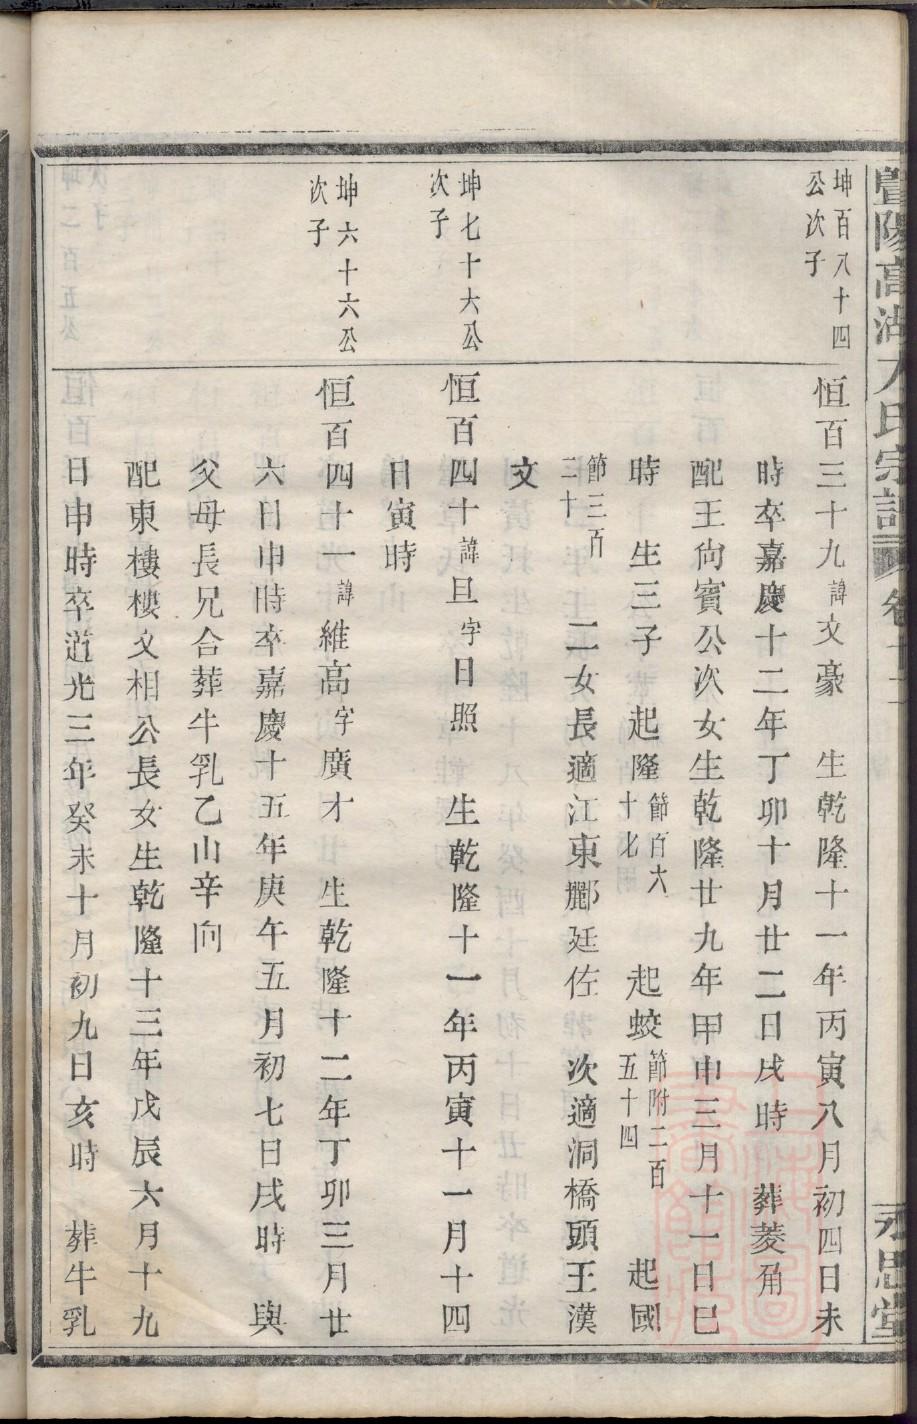 暨陽高湖方氏宗譜 卷十二 永思堂
坤百八十四
公次子
恒百三十九諱文豪 生乾隆十一年丙寅八月初四日未
時卒嘉慶十二年丁卯十月廿二日戌時 葬菱角
配王尙賓公次女生乾隆廿九年甲申三月十一日巳
時 生三子 起隆節百六十七嗣 起蛟節附二百五十四 起國
節三百二十 二女長適江東酈廷佐 次適洞橋頭王漢
文
坤七十六公
次子
恒百四十諱旦字日照 生乾隆十一年丙寅十一月十四
日寅時
坤六十六公
次子
恒百四十一諱維高字廣才 生乾隆十二年丁卯三月廿
六日申時卒嘉慶十五年庚午五月初七日戌時 與
父母長兄合葬牛乳乙山辛向
配東樓樓文相公長女生乾隆十三年戊辰六月十九
日申時卒道光三年癸未十月初九日亥時 葬牛乳